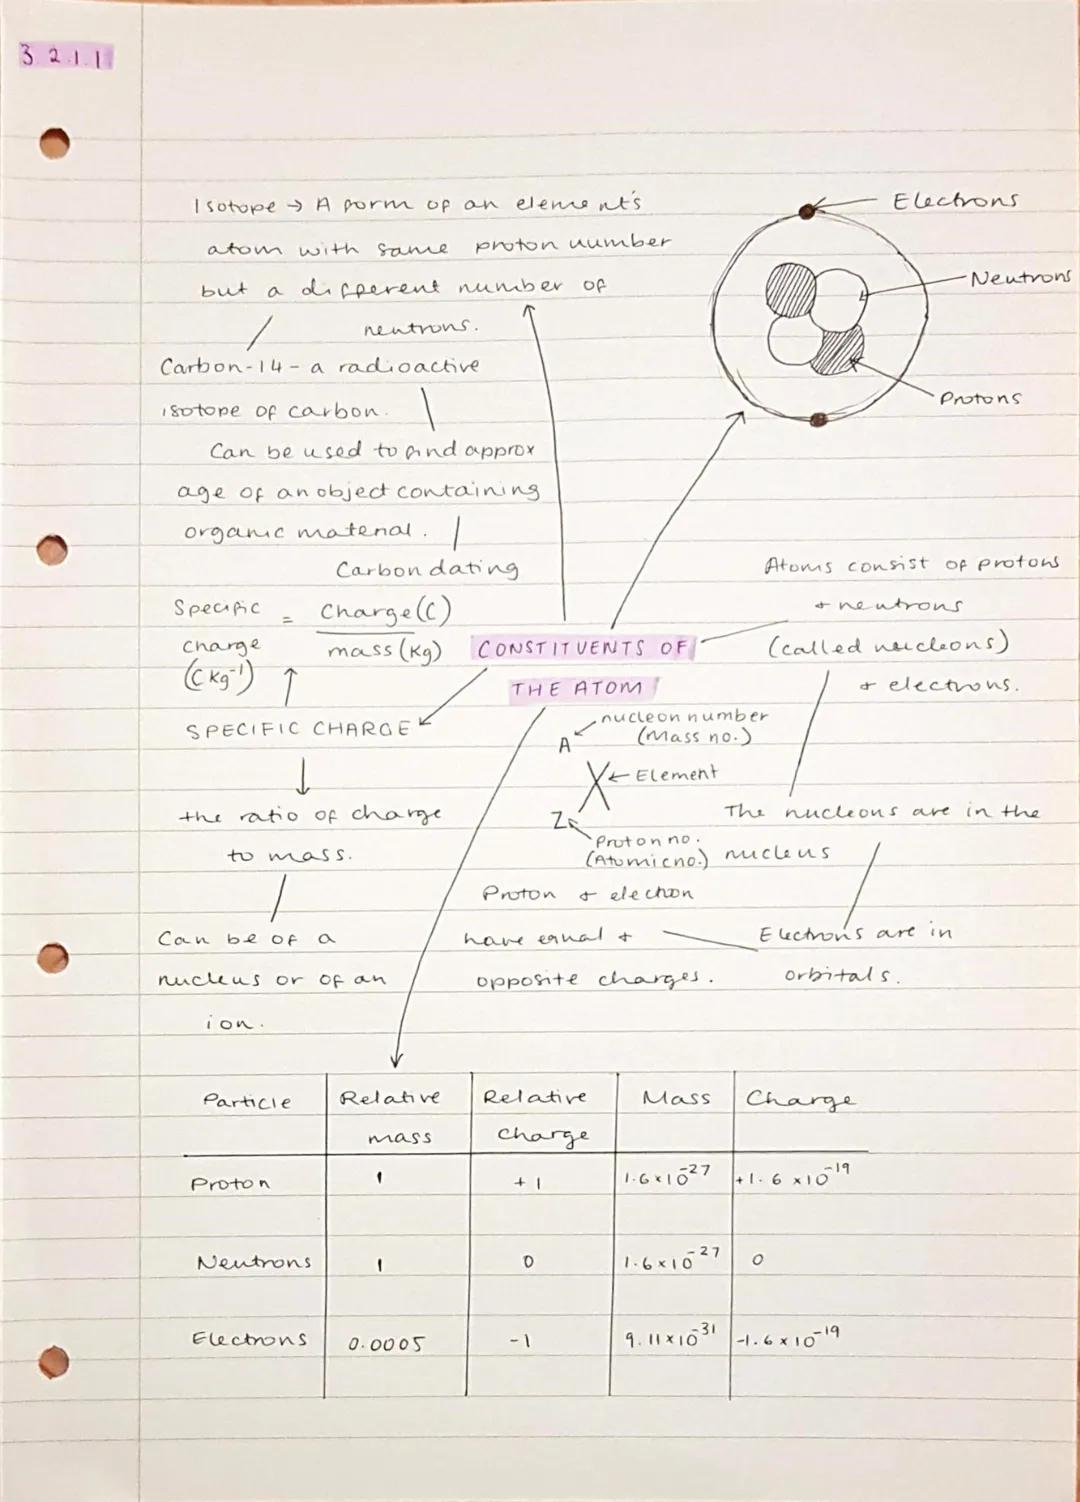 3.2.1.1
Isotope → A form of an element's
atom with same proton number
but a different number of
neutrons.
Carbon-14 - a radioactive
isotope of carbon.
Can be used to find approx
age of an object containing
organic material.
Carbon dating
Electrons
Neutrons
Protons
Specific charge (C kg⁻¹) = Charge (C) / mass (kg)
SPECIFIC CHARGE
the ratio of charge
to mass.
Can be of a
nucleus or of an
ion.
CONSTITUENTS OF
THE ATOM
Atoms consist of protons
+ neutrons
(called nucleons)
+ electrons.
A
nucleon number
(Mass no.)
X
Element
Z
Proton no.
(Atomic no.)
The nucleons are in the
nucleus
Electrons are in
orbitals.
Proton + electron
have equal +
opposite charges.
Particle | Relative mass | Relative charge | Mass | Charge
Proton | 1 | +1 | 1.6×10⁻²⁷ | +1.6×10⁻¹⁹
Neutrons | 1 | 0 | 1.6×10⁻²⁷ | 0
Electrons | 0.0005 | -1 | 9.11×10⁻³¹ | -1.6×10⁻¹⁹